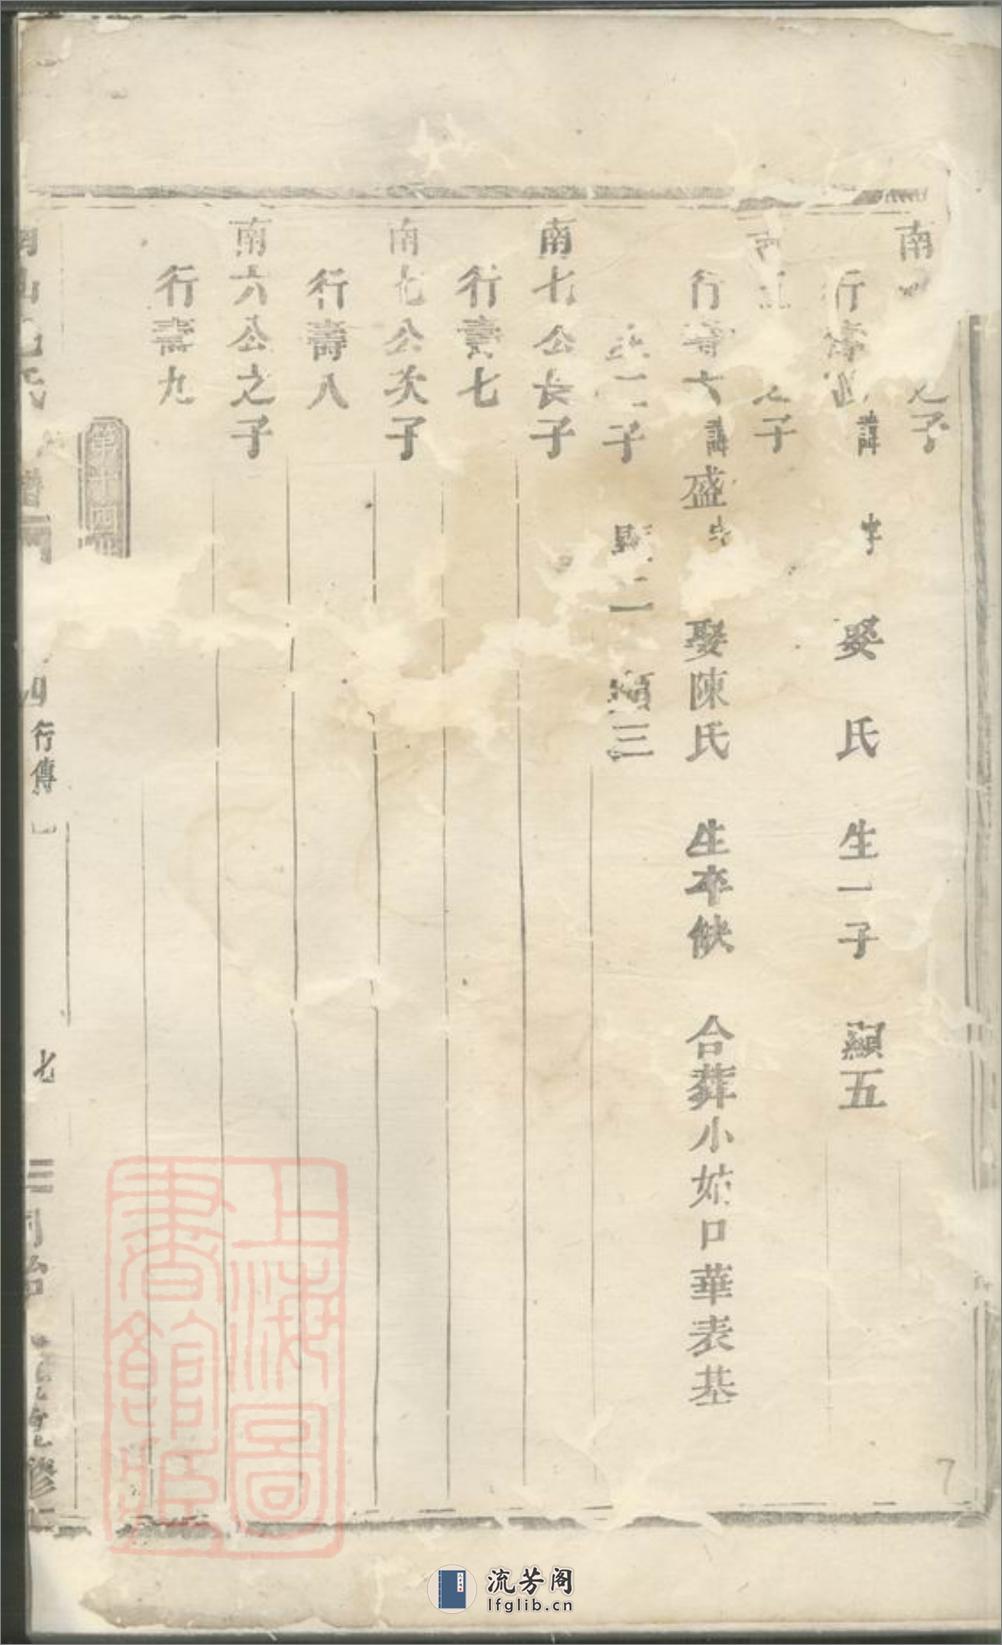 南 之子
行壽 諱 字 娶 氏 生一子 顯五
之子
行壽六諱盛字 娶陳氏 生卒缺 合葬小姑口華表基
二子 顯二 顯三
南七公長子
行壽七
南七公次子
行壽八
南六公之子
行壽九
第十四
氏 譜 行傳 七 同治 修
上海圖書館藏
7
流芳阁
lfglib.cn